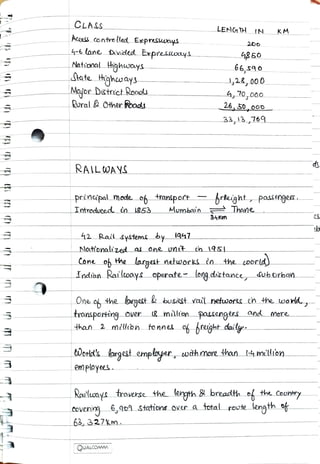 CLASS LENGTH IN KM
Access controlled Expressways 200
4-6 lane Divided Expressways 4850
National Highways 66,590
State Highways 1,28,000
Major District Roads 4,70,000
Rural & Other Roads 26,50,000
33,13,769
RAILWAYS
principal mode of transport — freight, passengers.
Introduced in 1853 Mumbain ⇌ Thane
34km
42 Rail systems by 1947
Nationalized as one unit in 1951
(one of the largest networks in the world)
Indian Railways operate - long distance, suborban
One of the largest & busiest rail networks in the world,
transporting over 18 million passengers and more
than 2 million tonnes of freight daily.
World's largest employer, with more than 1.4 million
employees.
Railways traverse the length & breadth of the country
covering 6,909 stations over a total route length of
63,327km.
QUALCOMM